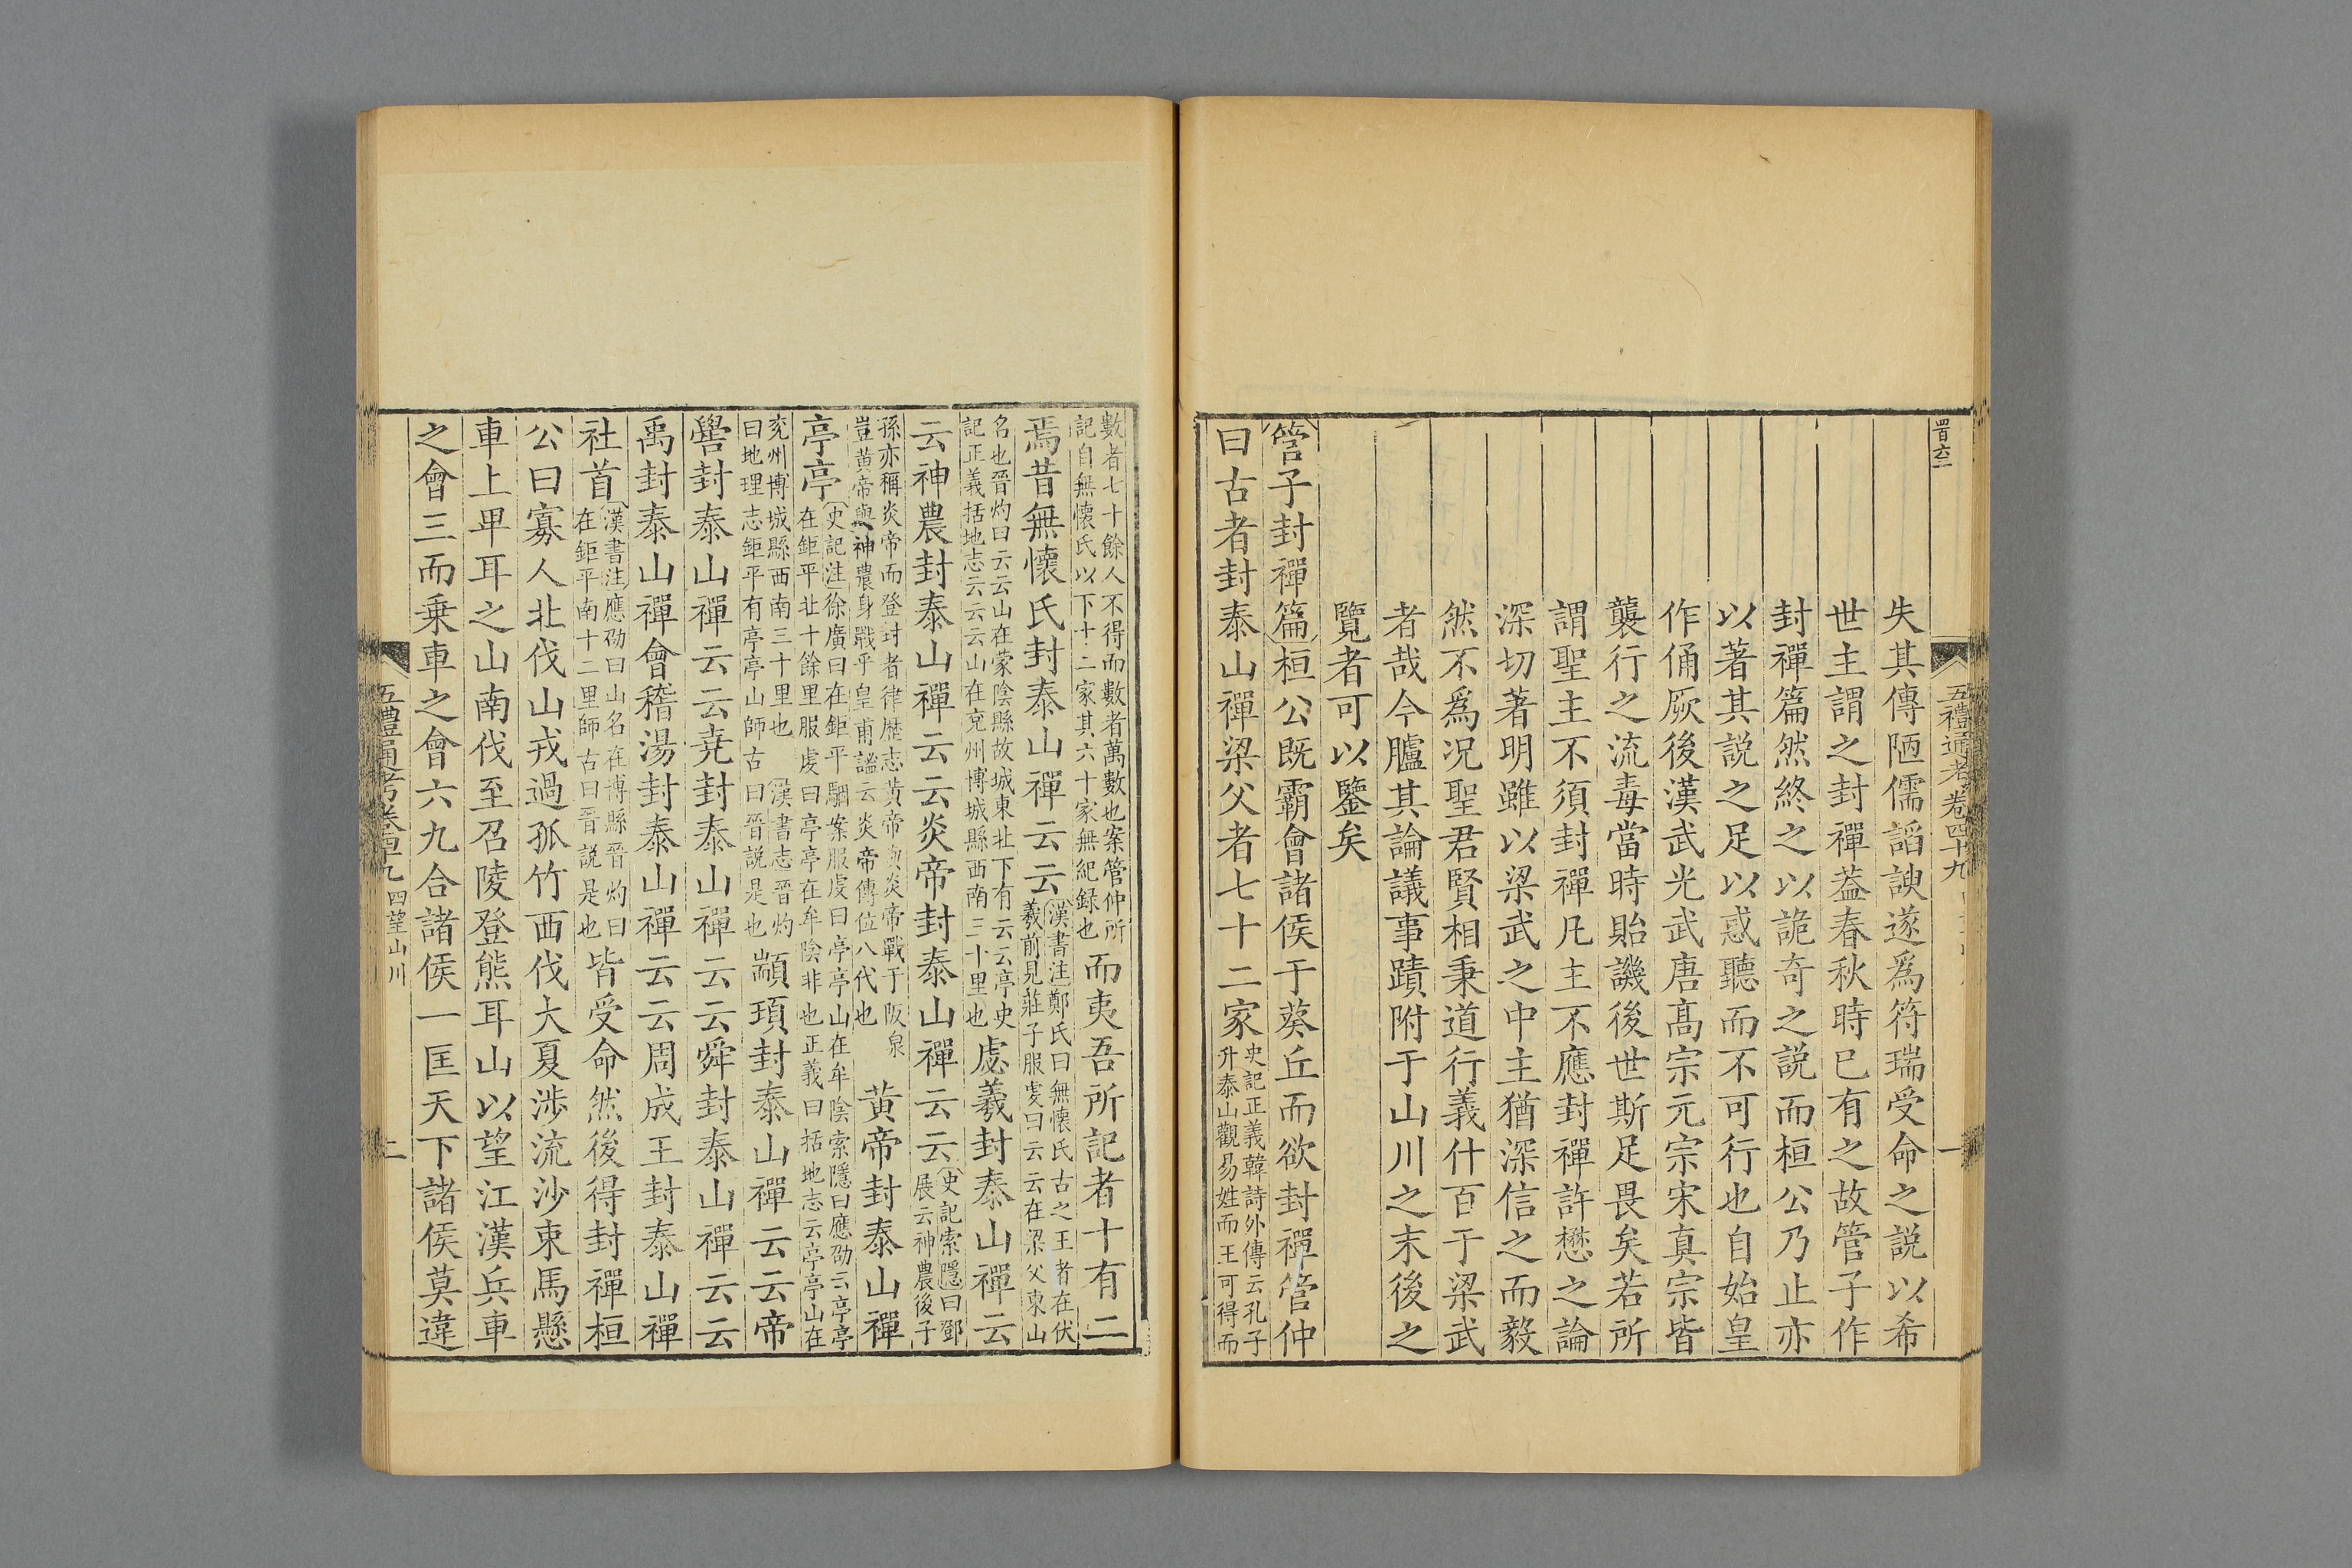 四百六二
五禮通考卷四十九
一
失其傳陋儒謟諛遂爲符瑞受命之説以希
世主謂之封禪葢春秋時已有之故管子作
封禪篇然終之以詭奇之説而桓公乃止亦
以著其説之足以惑聽而不可行也自始皇
作俑厥後漢武光武唐髙宗元宗宋真宗皆
襲行之流毒當時貽譏後世斯足畏矣若所
謂聖主不須封禪凡主不應封禪許懋之論
深切著明雖以梁武之中主猶深信之而毅
然不爲况聖君賢相秉道行義什百于梁武
者哉今臚其論議事蹟附于山川之末後之
覽者可以鑒矣
管子封禪篇桓公既霸會諸侯于葵丘而欲封禪管仲
曰古者封泰山禪梁父者七十二家史記正義韓詩外傳云孔子
升泰山觀易姓而王可得而
數者七十餘人不得而數者萬數也案管仲所
記自無懷氏以下十二家其六十家無紀録也而夷吾所記者十有二
焉昔無懷氏封泰山禪云云漢書注鄭氏曰無懷氏古之王者在伏
羲前見莊子服虔曰云云在梁父東山
名也晉灼曰云云山在蒙陰縣故城東北下有云云亭史
記正義括地志云云云山在兖州博城縣西南三十里也虙羲封泰山禪云
云神農封泰山禪云云炎帝封泰山禪云云史記索隱曰鄧
展云神農後子
孫亦稱炎帝而登封者律歴志黃帝與炎帝戰于阪泉
豈黃帝與神農身戰乎皇甫謐云炎帝傳位八代也黃帝封泰山禪
亭亭史記注徐廣曰在鉅平駰案服虔曰亭亭山在牟陰索隱曰應劭云亭亭
在鉅平北十餘里服虔曰亭亭在牟陰非也正義曰括地志云亭亭山在
兖州博城縣西南三十里也漢書志晉灼
曰地理志鉅平有亭亭山師古曰晉説是也顓頊封泰山禪云云帝
嚳封泰山禪云云堯封泰山禪云云舜封泰山禪云云
禹封泰山禪會稽湯封泰山禪云云周成王封泰山禪
社首漢書注應劭曰山名在博縣晉灼曰
在鉅平南十二里師古曰晉説是也皆受命然後得封禪桓
公曰寡人北伐山戎過孤竹西伐大夏涉流沙束馬懸
車上畢耳之山南伐至召陵登熊耳山以望江漢兵車
之會三而乗車之會六九合諸侯一匡天下諸侯莫違
五禮通考卷四十九 四望山川
二